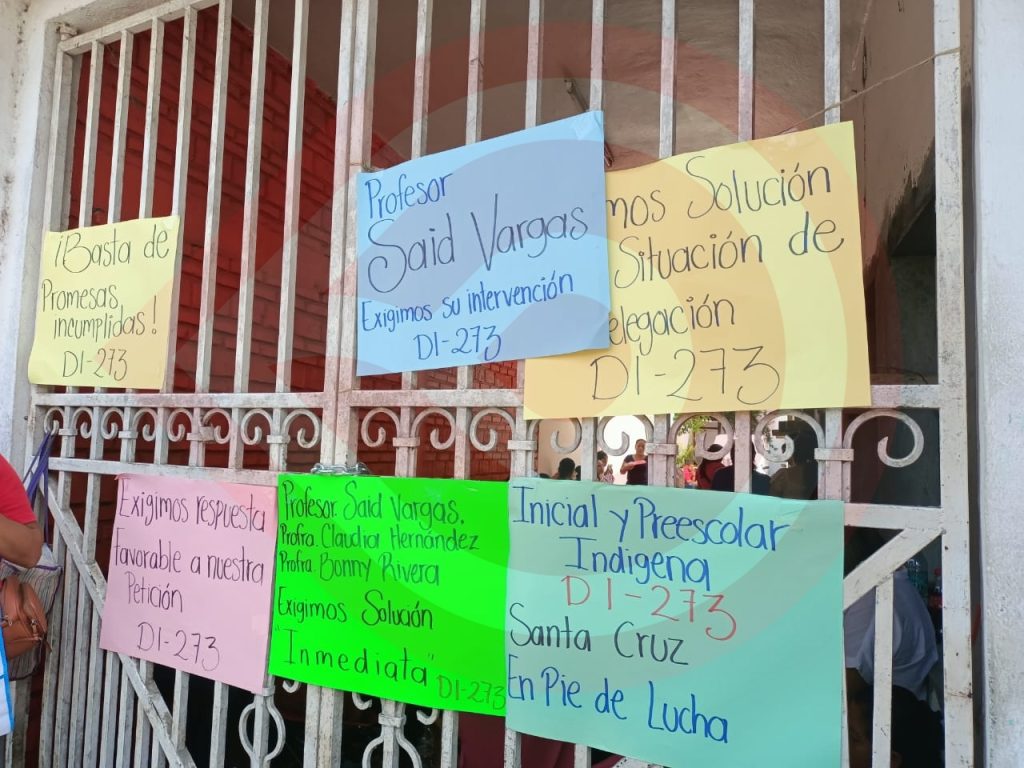 ¡Basta de
Promesas
incumplidas!
DI-273
Profesor
Said Vargas
Exigimos su intervención
DI-273
Solución
Situación de
DI-273
Exigimos respuesta
Favorable a nuestra
Petición
DI-273
Profesor Said Vargas,
Profra. Claudia Hernández
Profra. Bonny Rivera
Exigimos Solución
"Inmediata"
DI-273
Inicial y Preescolar
Indigena
DI-273
Santa Cruz
En Pie de Lucha